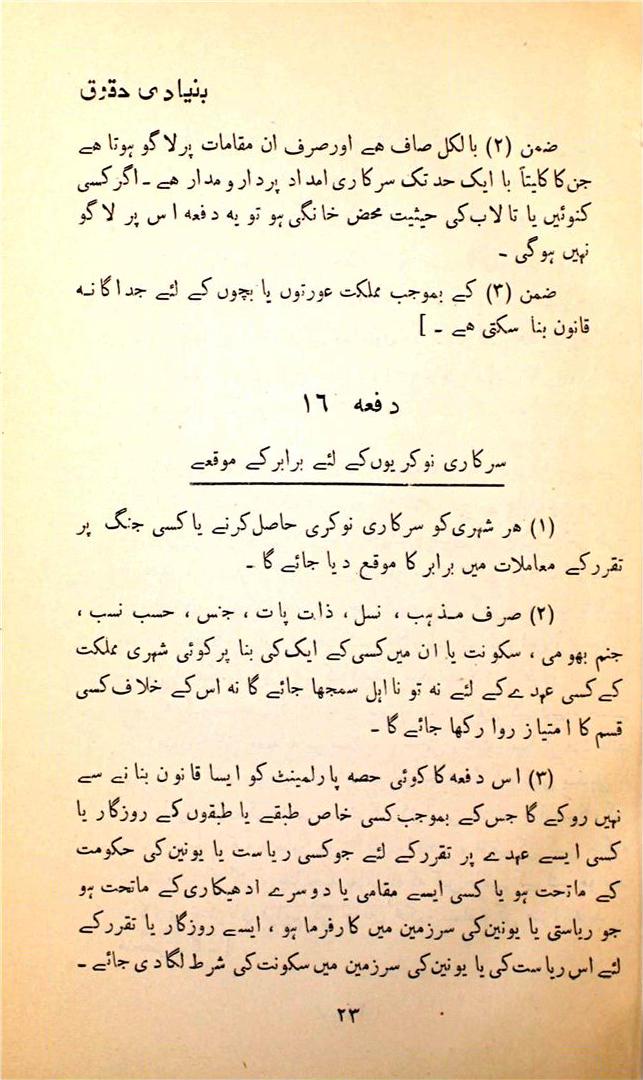 بنیادی حقوق
ضمن (۲) بالکل صاف ھے اور صرف ان مقامات پر لاگو ہوتا ھے
جن کا کلیتاً یا ایک حد تک سرکاری امداد پر دار و مدار ھے ۔ اگر کسی
کنوئیں یا تالاب کی حیثیت محض خانگی ہو تو یہ دفعہ اس پر لاگو
نہیں ہوگی ۔
ضمن (۳) کے بموجب مملکت عورتوں یا بچوں کے لئے جداگانہ
قانون بنا سکتی ھے ۔ ]
دفعہ ۱٦
سرکاری نوکریوں کے لئے برابر کے موقعے
(۱) ھر شہری کو سرکاری نوکری حاصل کرنے یا کسی جنگ پر
تقرر کے معاملات میں برابر کا موقع دیا جائے گا ۔
(۲) صرف مذہب ، نسل ، ذات پات ، جنس ، حسب نسب ،
جنم بھومی ، سکونت یا ان میں کسی کے ایک کی بنا پر کوئی شہری مملکت
کے کسی عہدے کے لئے نہ تو نااہل سمجھا جائے گا نہ اس کے خلاف کسی
قسم کا امتیاز روا رکھا جائے گا ۔
(۳) اس دفعہ کا کوئی حصہ پارلمینٹ کو ایسا قانون بنانے سے
نہیں روکے گا جس کے بموجب کسی خاص طبقے یا طبقوں کے روزگار یا
کسی ایسے عہدے پر تقرر کے لئے جو کسی ریاست یا یونین کی حکومت
کے ماتحت ہو یا کسی ایسے مقامی یا دوسرے ادھیکاری کے ماتحت ہو
جو ریاستی یا یونین کی سرزمین میں کارفرما ہو ، ایسے روزگار یا تقرر کے
لئے اس ریاست کی یا یونین کی سرزمین میں سکونت کی شرط لگا دی جائے ۔
۲۳